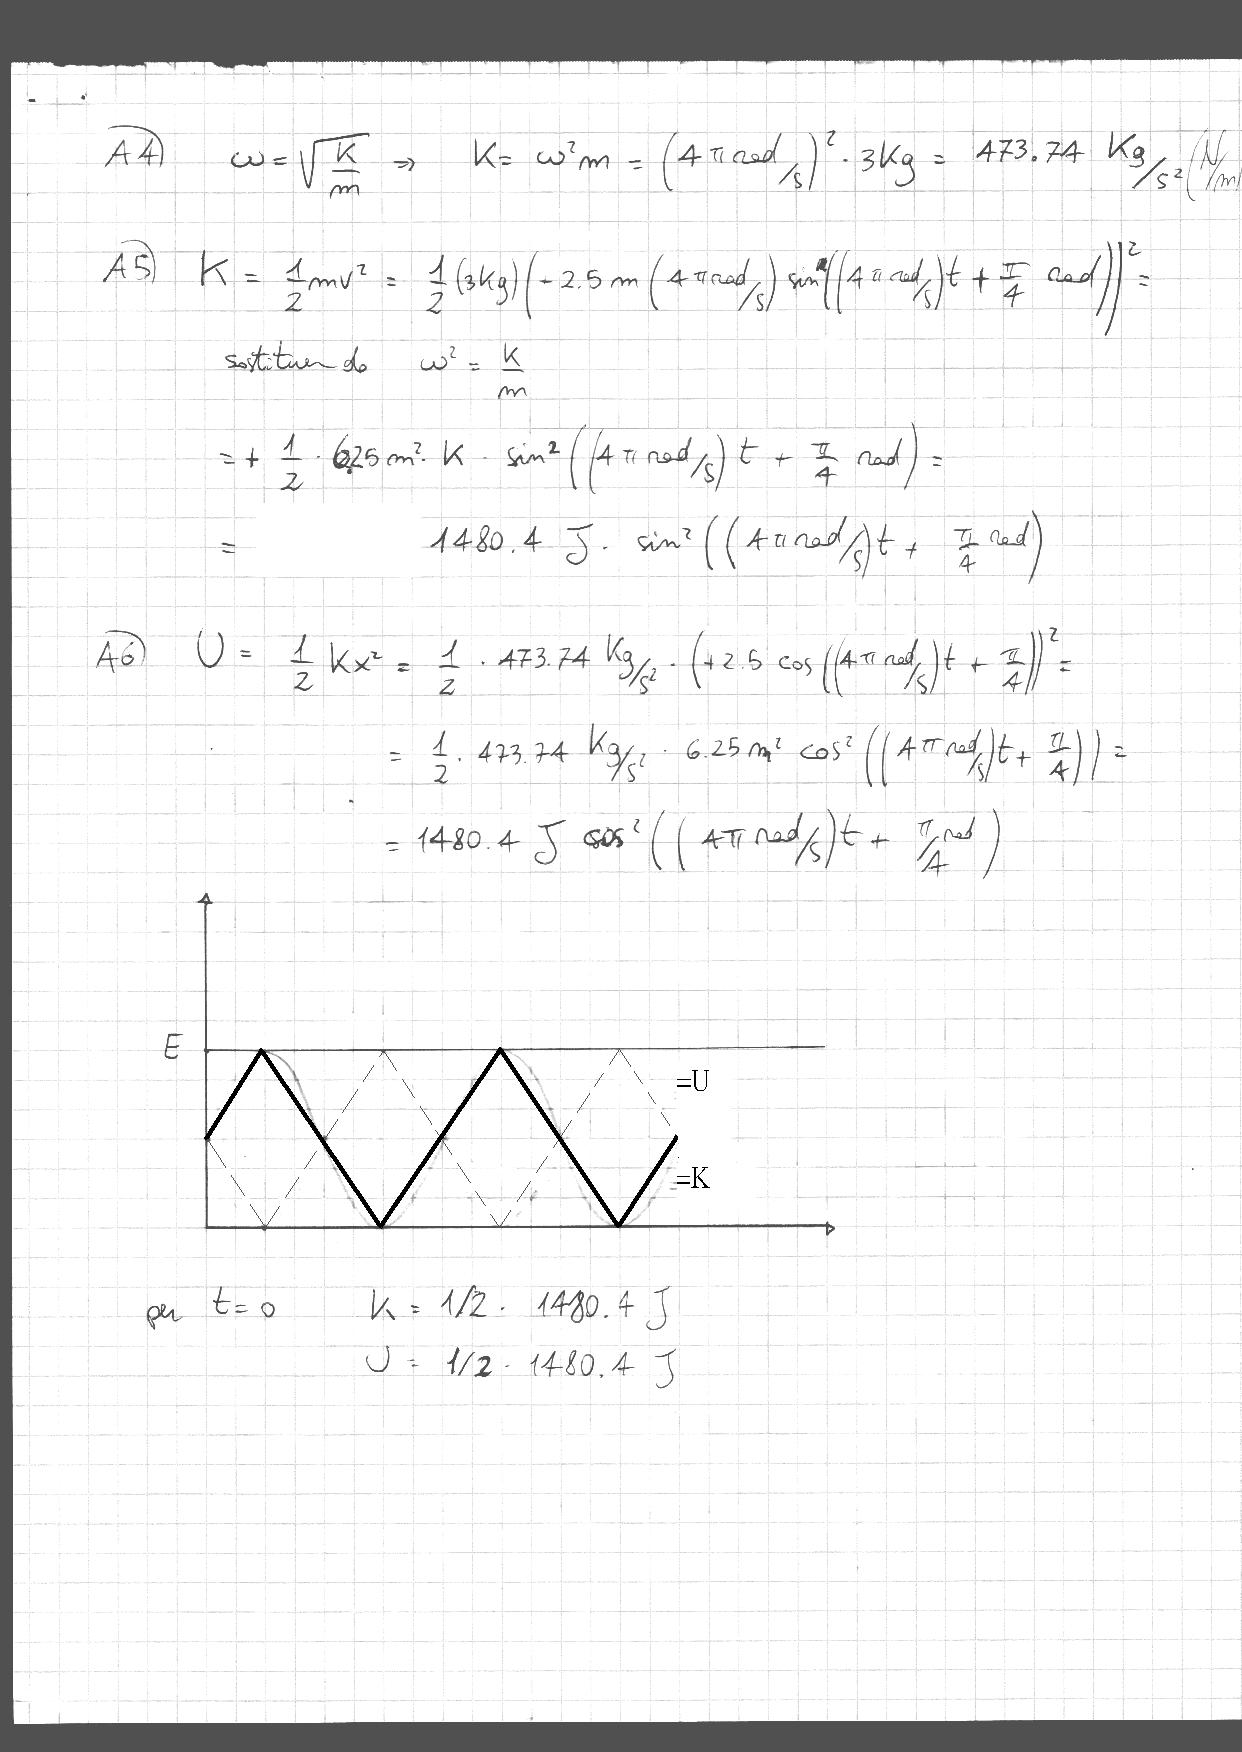 A4) ω = √(K/m) ⇒ K = ω²m = (4π rad/s)² · 3Kg = 473.74 Kg/s² (N/m)
A5) K = 1/2 mv² = 1/2 (3Kg) (-2.5 m (4π rad/s) sin((4π rad/s)t + π/4 rad))² =
sostituendo ω² = K/m
= + 1/2 · 6.25 m² · K · sin² ((4π rad/s) t + π/4 rad) =
= 1480.4 J · sin² ((4π rad/s)t + π/4 rad)
A6) U = 1/2 Kx² = 1/2 · 473.74 Kg/s² · (+2.5 cos((4π rad/s)t + π/4))² =
= 1/2 · 473.74 Kg/s² · 6.25 m² cos² ((4π rad/s)t + π/4)) =
= 1480.4 J cos² ((4π rad/s)t + π/4 rad)
E
=U
=K
per t=0 K = 1/2 · 1480.4 J
U = 1/2 · 1480.4 J